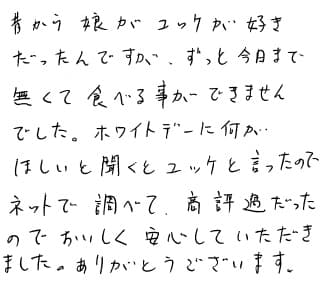 昔から 娘が ユッケが 好き
だったんですが、ずっと今日まで
無くて 食べる事ができません
でした。ホワイトデーに何が
ほしいと聞くとユッケと言ったので
ネットで 調べて、高評過だった
のでおいしく 安心していただき
ました。ありがとうございます。